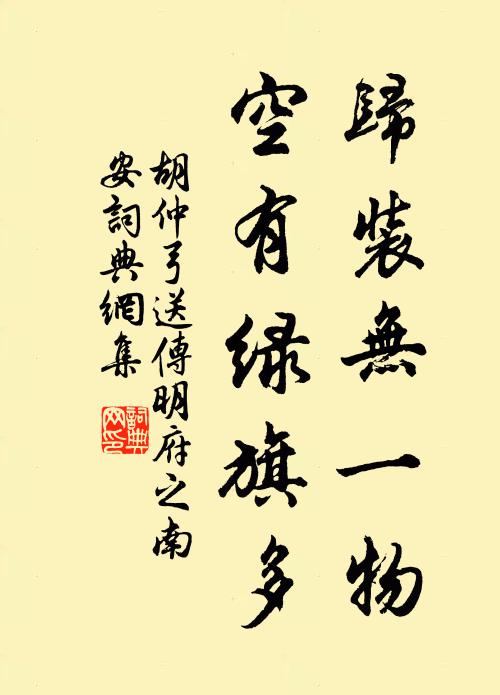 歸裝無一物
空有緑旗多
胡仲弓送傅明府之南
安詞典網集
詞典
网印